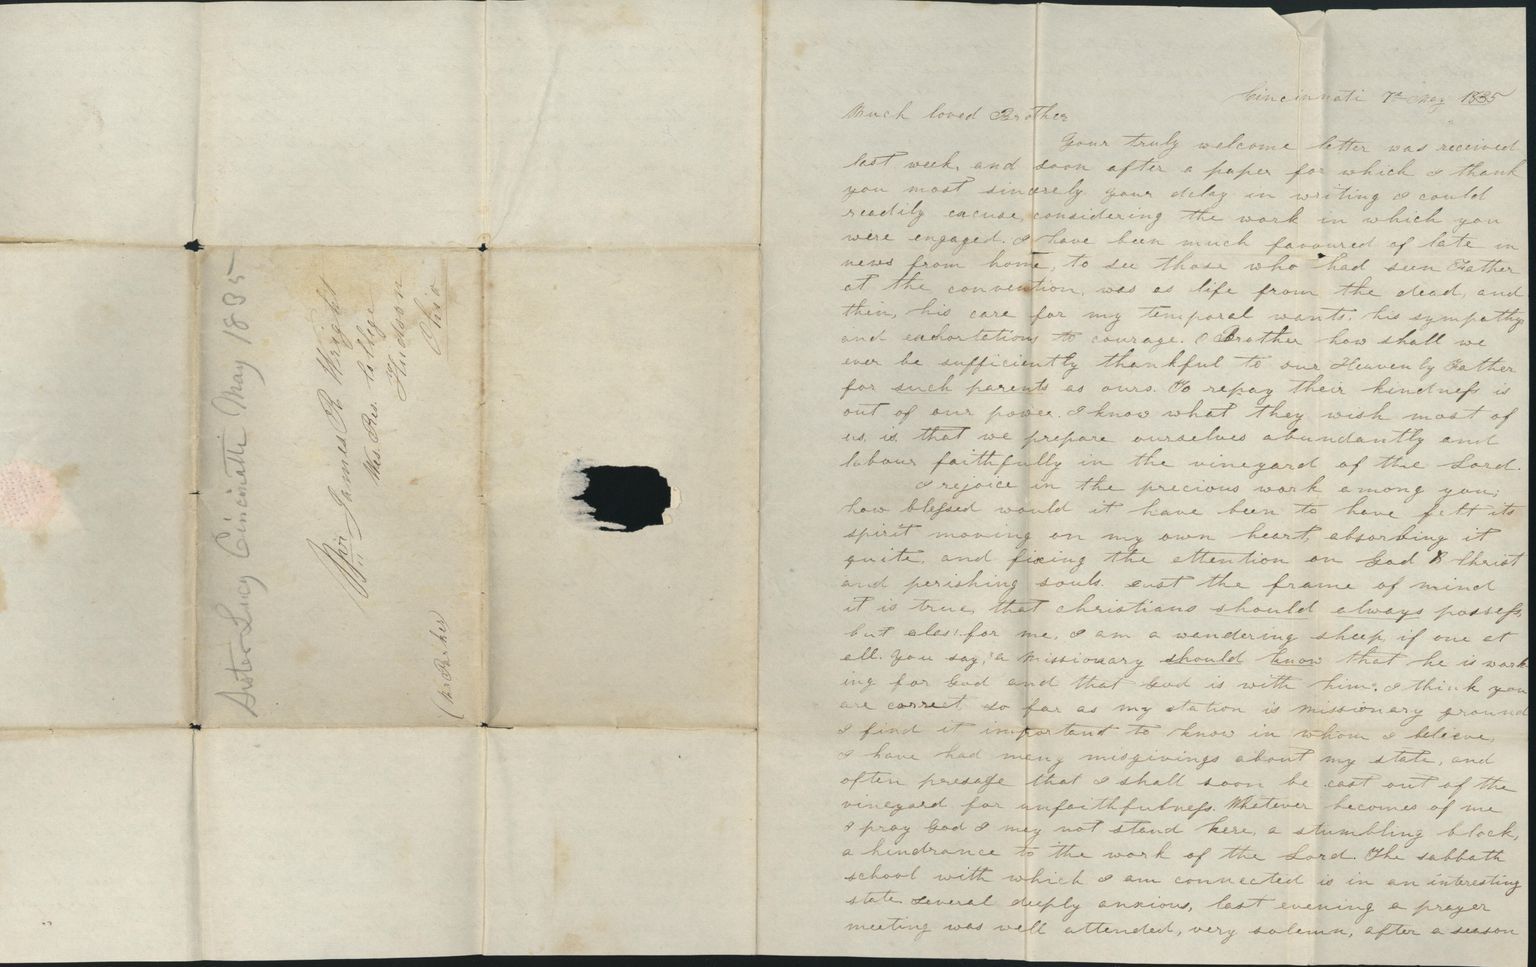 Sister Lucy Cincinatti May 1835
Mr James R Wright
Wes. Res. College
Hudson
Ohio
(Mr Parker)
Cincinnati 7th May 1835
Much loved Brother
Your truly welcome letter was received
last week, and soon after a paper for which I thank
you most sincerely. Your delay in writing I could
readily excuse, considering the work in which you
were engaged. I have been much favoured of late in
news from home, to see those who had seen Father
at the convention, was as life from the dead, and
then, his care for my temporal wants, his sympathy
and exhortations to courage. O Brother how shall we
ever be sufficiently thankful to our Heavenly Father
for such parents as ours. To repay their kindness is
out of our power. I know what they wish most of
us, is, that we prepare ourselves abundantly and
labour faithfully in the vineyard of the Lord.
I rejoice in the precious work among you;
how blessed would it have been to have felt its
spirit moving on my own heart, absorbing it
quite, and fixing the attention on God & Christ
and perishing souls. Just the frame of mind
it is true, that christians should always possess,
but alas! for me, I am a wandering sheep, if one at
all. You say, "a missionary should know that he is work
ing for God and that God is with him". I think you
are correct so far as my station is missionary ground
I find it important to know in whom I believe,
I have had many misgivings about my state, and
often presage that I shall soon be cast out of the
vineyard for unfaithfulness. Whatever becomes of me
I pray God I may not stand here, a stumbling block,
a hindrance to the work of the Lord. The sabbath
school with which I am connected is in an interesting
state several deeply anxious, last evening a prayer
meeting was well attended, very solemn, after a season